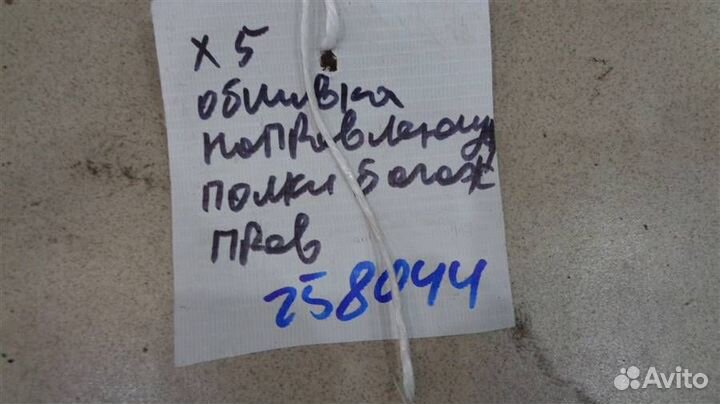 X 5
обшивка
направляющ
полки багаж
прав
258044
Avito